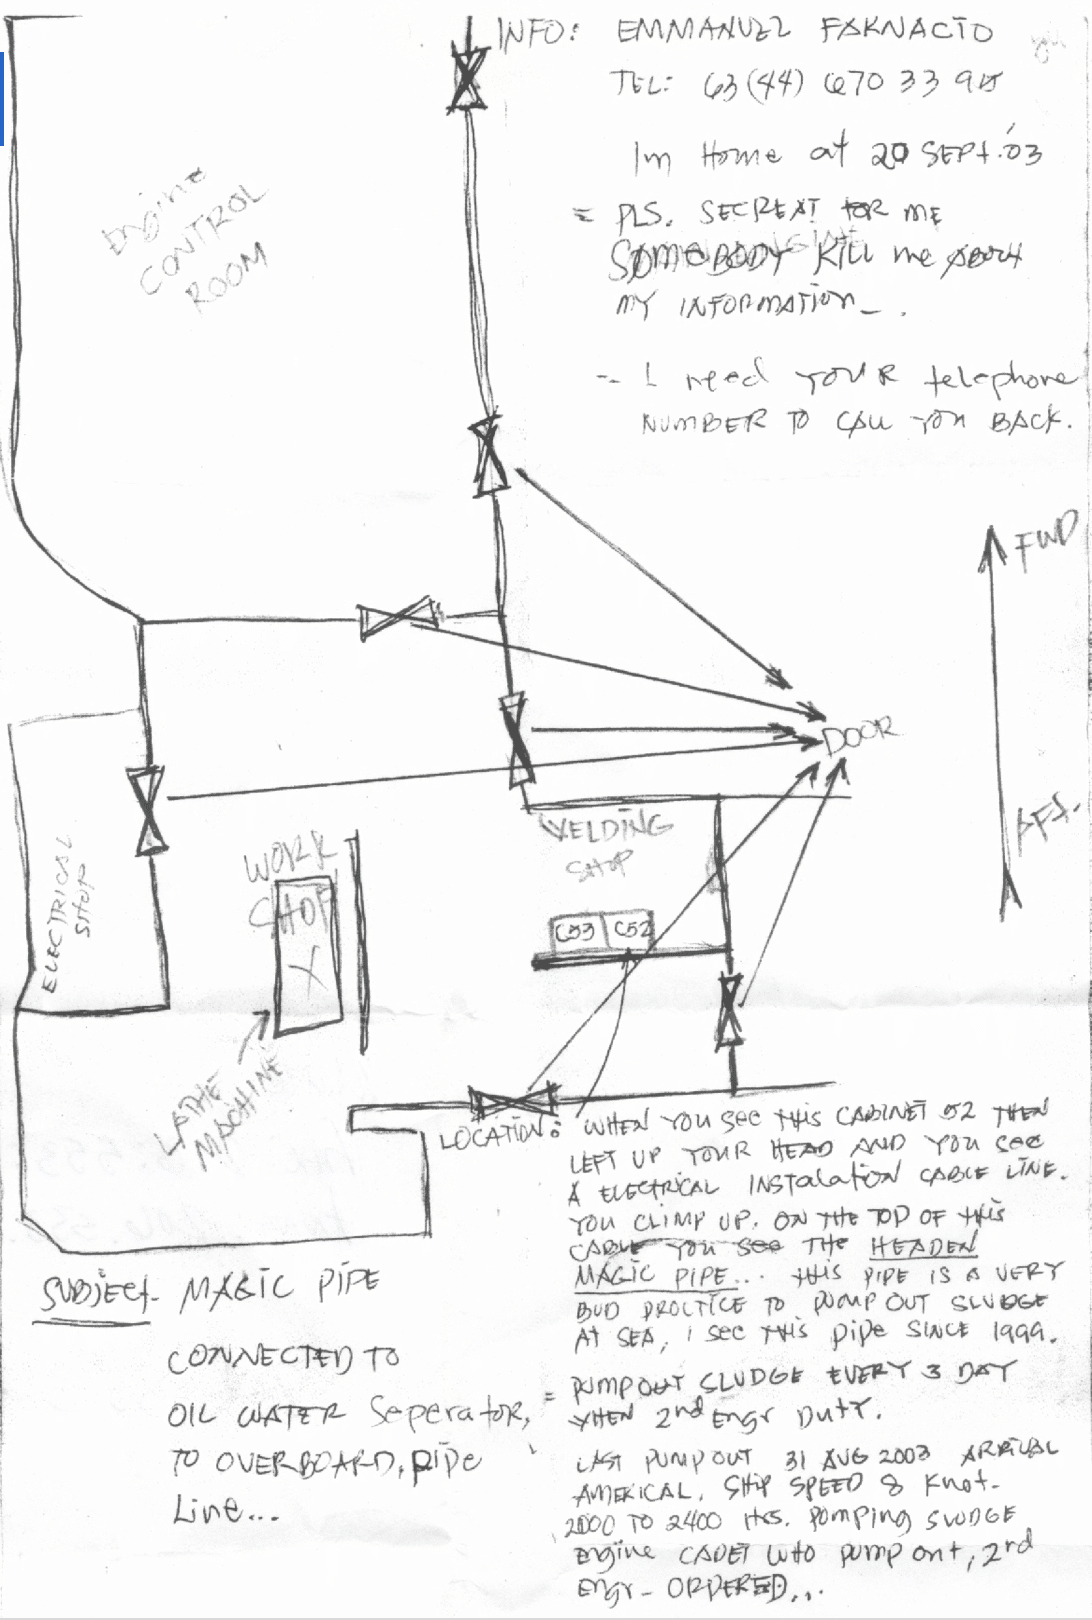 INFO: EMMANUEL FAKNACTO
TEL: 63(44) 670 33 95
Im Home at 20 SEPT. '03
= PLS. SECREAT FOR ME
SOMEBODY KILL me
MY INFORMATION_ .
-- I need YOUR telephone
NUMBER TO CALL YOU BACK.
Engine
CONTROL
ROOM
FWD
DOOR
AFt.
WELDING
SHOP
WORK
SHOP
X
ELECTRICAL
SHOP
C53 C52
LATHE
MACHINE
LOCATION: WHEN YOU see tHIS CABINET 52 THEN
LEFT UP YOUR HEAD AND YOU see
A ELECTRICAL INSTalation CABLE LINE.
YOU CLIMP UP. ON THE TOP OF tHIS
CABLE YOU see THE HEADEN
MAGIC PIPE... tHIS PIPE IS A VERY
BUD PROCTICE TO PUMP OUT SLUDGE
AT SEA, I see tHIS pipe SINCE 1999.
= PUMPOUT SLUDGE EVERY 3 DAY
WHEN 2nd Engr DUTY.
LAST PUMPOUT 31 AUG 2003 ARRIVAL
AMERICAL. SHIP SPEED 8 Knot-
2000 TO 2400 Hrs. Pomping SLUDGE
engine CADET WHO pump out, 2nd
Engr- ORDERED...
SUBJECt- MAGIC PIPE
CONNECTED TO
OIL WATER Seperator,
TO OVERBOARD, pipe
Line...